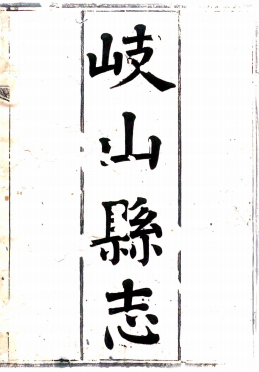 岐山縣志